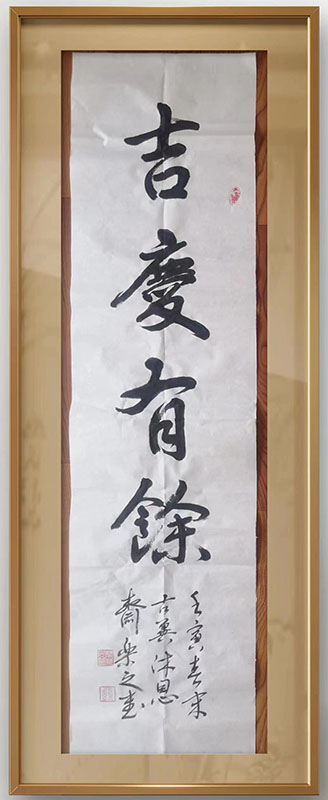 吉慶有餘
壬寅春末
古冀沐恩
齋樂之書